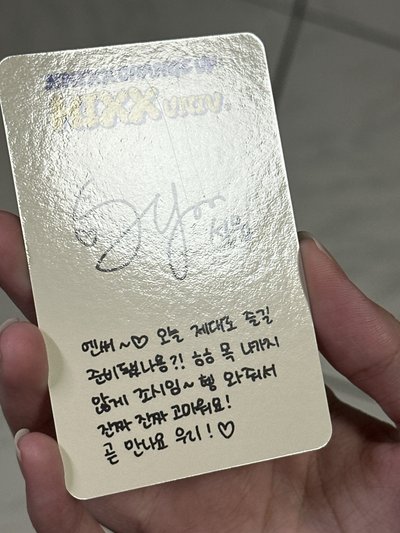 NMIXX CHANGE UP
MIXX UNIV.
설윤
엔써~♡ 오늘 제대로 즐길
준비 됐나용?! ㅎㅎ 목 나가지
않게 조시임~ 형 와줘서
진짜 진짜 고마워요!
곧 만나요 우리!♡